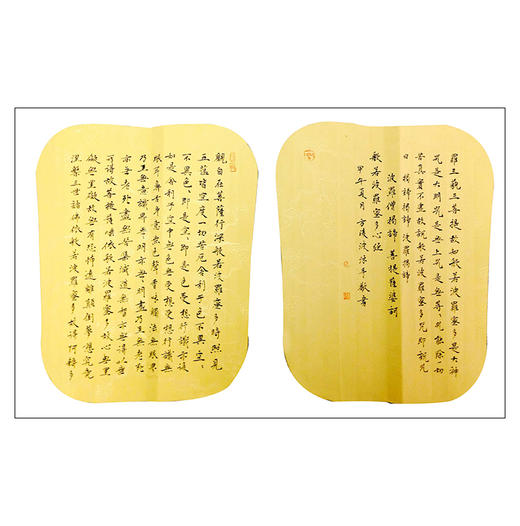 觀自在菩薩行深般若波羅蜜多時照見
五蘊皆空度一切苦厄舍利子色不異空、
不異色、即是空、即是色受想行識亦復
如是舍利子空中無色無受想行識無
眼耳鼻舌身意無色聲香味觸法無眼界
乃至無意識界無無明亦無無明盡乃至無老死
亦無老死盡無苦集滅道無智亦無得以無
所得故菩提薩埵依般若波羅蜜多故心無罣
礙無罣礙故無有恐怖遠離顛倒夢想究竟
涅槃三世諸佛依般若波羅蜜多故得阿耨多
羅三藐三菩提故知般若波羅蜜多是大神
咒是大明咒是無上咒是無等、咒能除一切
苦真實不虛故說般若波羅蜜多咒即說咒
曰 揭諦揭諦 波羅揭諦
波羅僧揭諦 菩提薩婆訶
般若波羅蜜多心經
甲午夏月 敬書